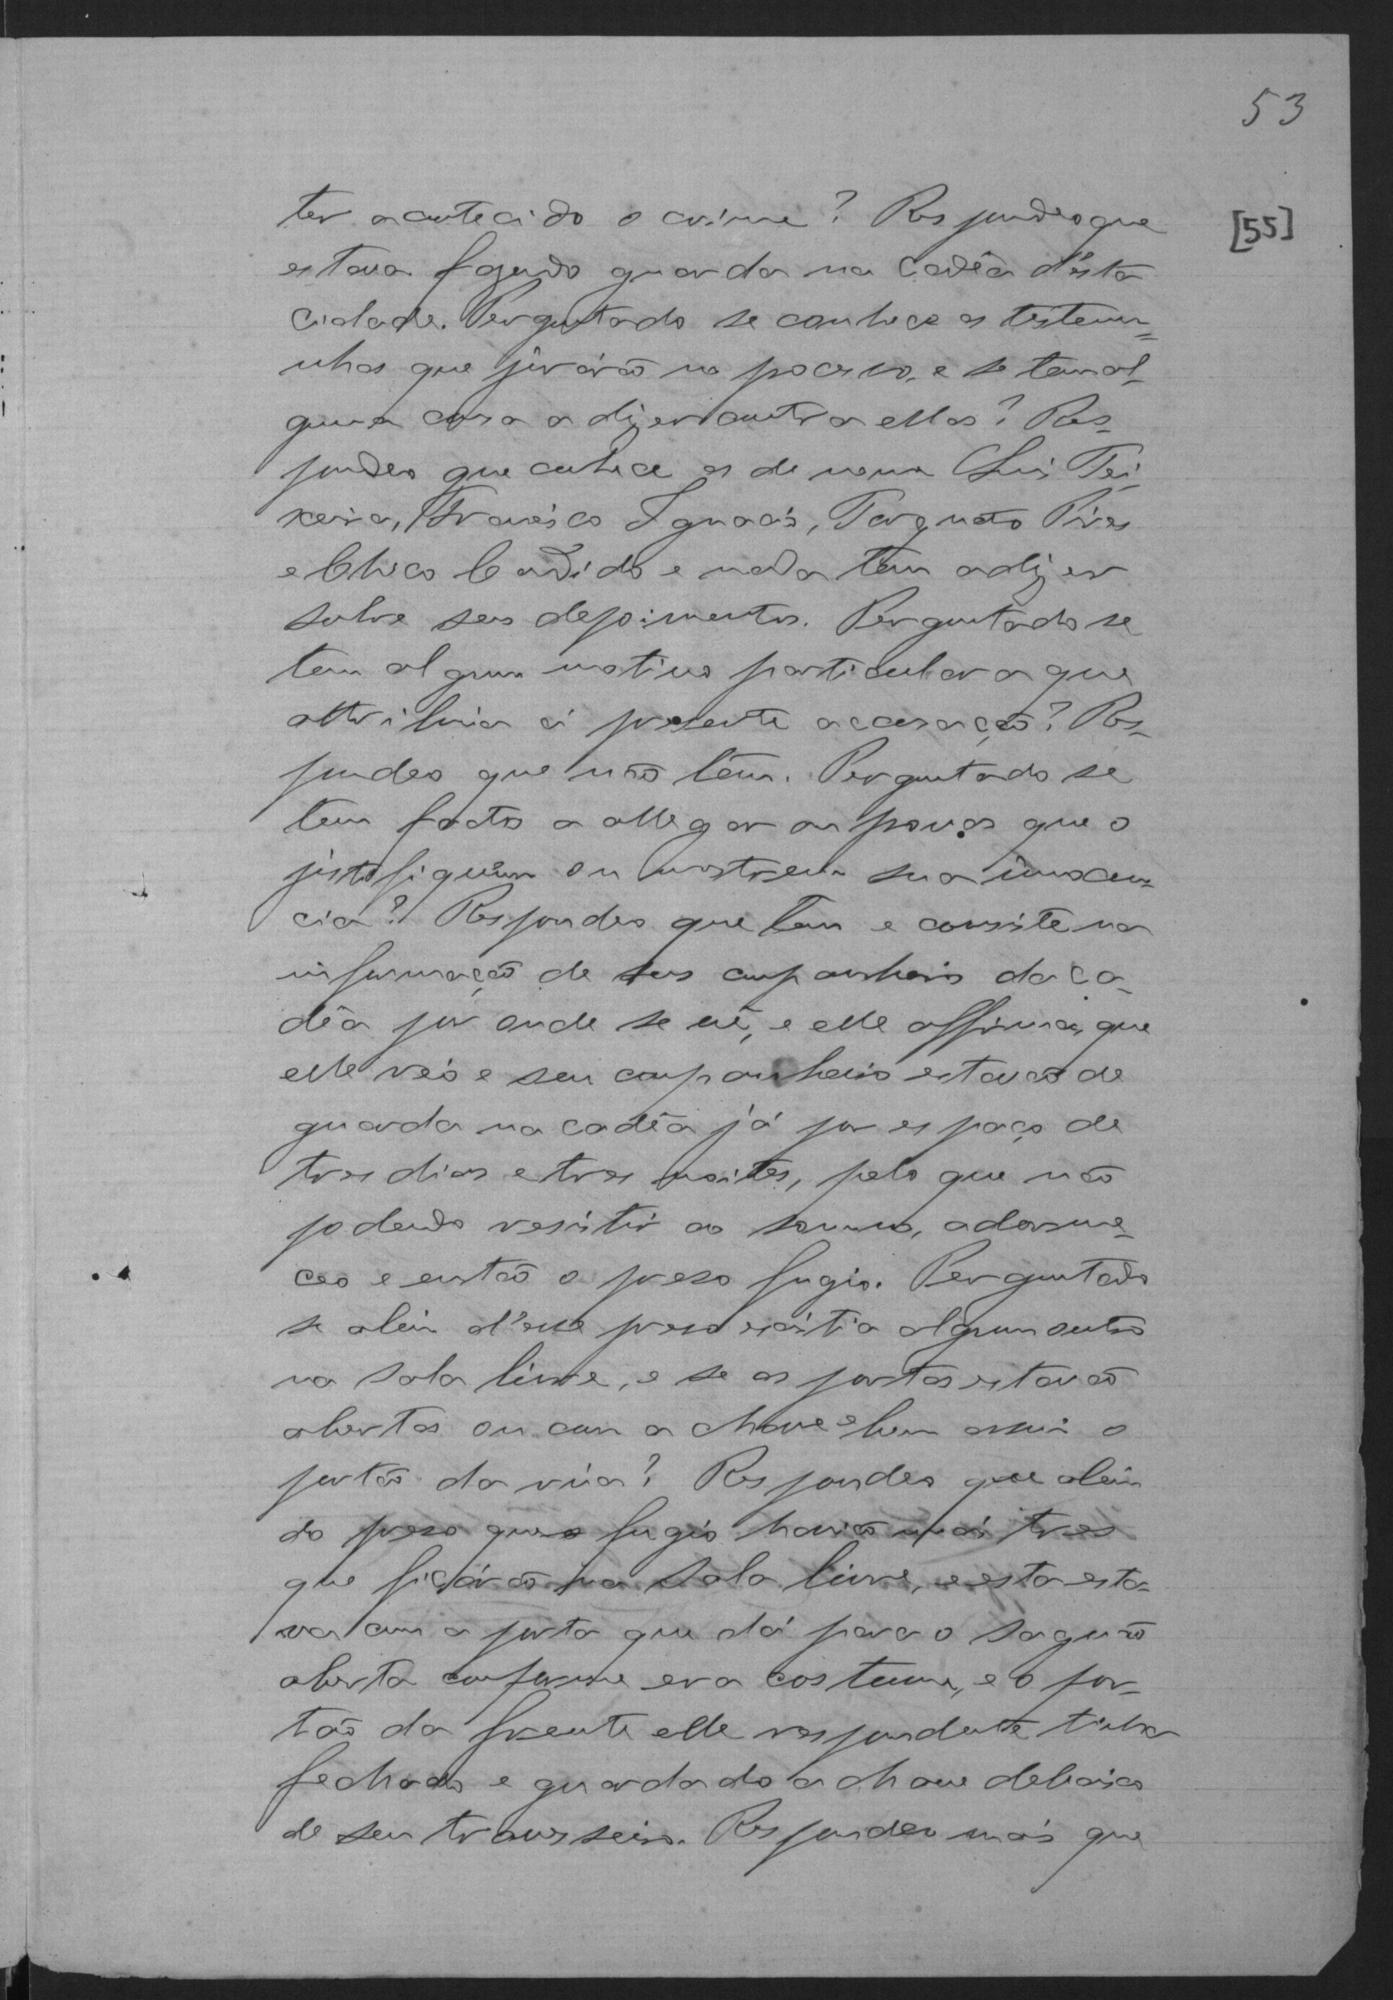 53
[55]
ter acontecido o crime? Respondeo que
estava fazendo guarda na Cadêa d'ésta
cidade. Perguntado se conhece as testemu=
nhas que jurárão no pocesso, e se tem al-
guma cousa a dizer contra ellas? Res-
pondeo que cohece as de nome Luis Tei
xeira, Francisco Ignacio, Torquato Pires
e Chico Candido e nada têm a dizer
sobre seus depoimentos. Perguntado se
tem algum motivo particular a que
attribuia á presente accusação? Res-
pondeo que não têm. Perguntado se
tem factos a allegar ou provas que o
justifiquem ou mostrem sua innocen=
cia? Respondeo que tem e consite na
informação de seus companheiros da ca-
dêa por onde se vê, e elle affirma, que
elle réo e seu companheiro estavão de
guarda na cadêa já por espaço de
tres dias e tres noites, pelo que não
podendo resistir ao somno, adorme-
ceo e então o preso fugio. Perguntado
se alem d'esse preso existia algum outro
na sala livre, e se as portas estavão
abertas ou com a chave e bem assim o
portão da rúa? Respondeo que alem
do preso que fugio havião mais tres
que ficárão na sala livre, e esta esta-
va com a porta que dá para o saguão
aberta conforme era costume, e o por-
tão da frente elle respondente tinha
fechado e guardado a chave debaixo
de seu travesseiro. Respondeo mais que